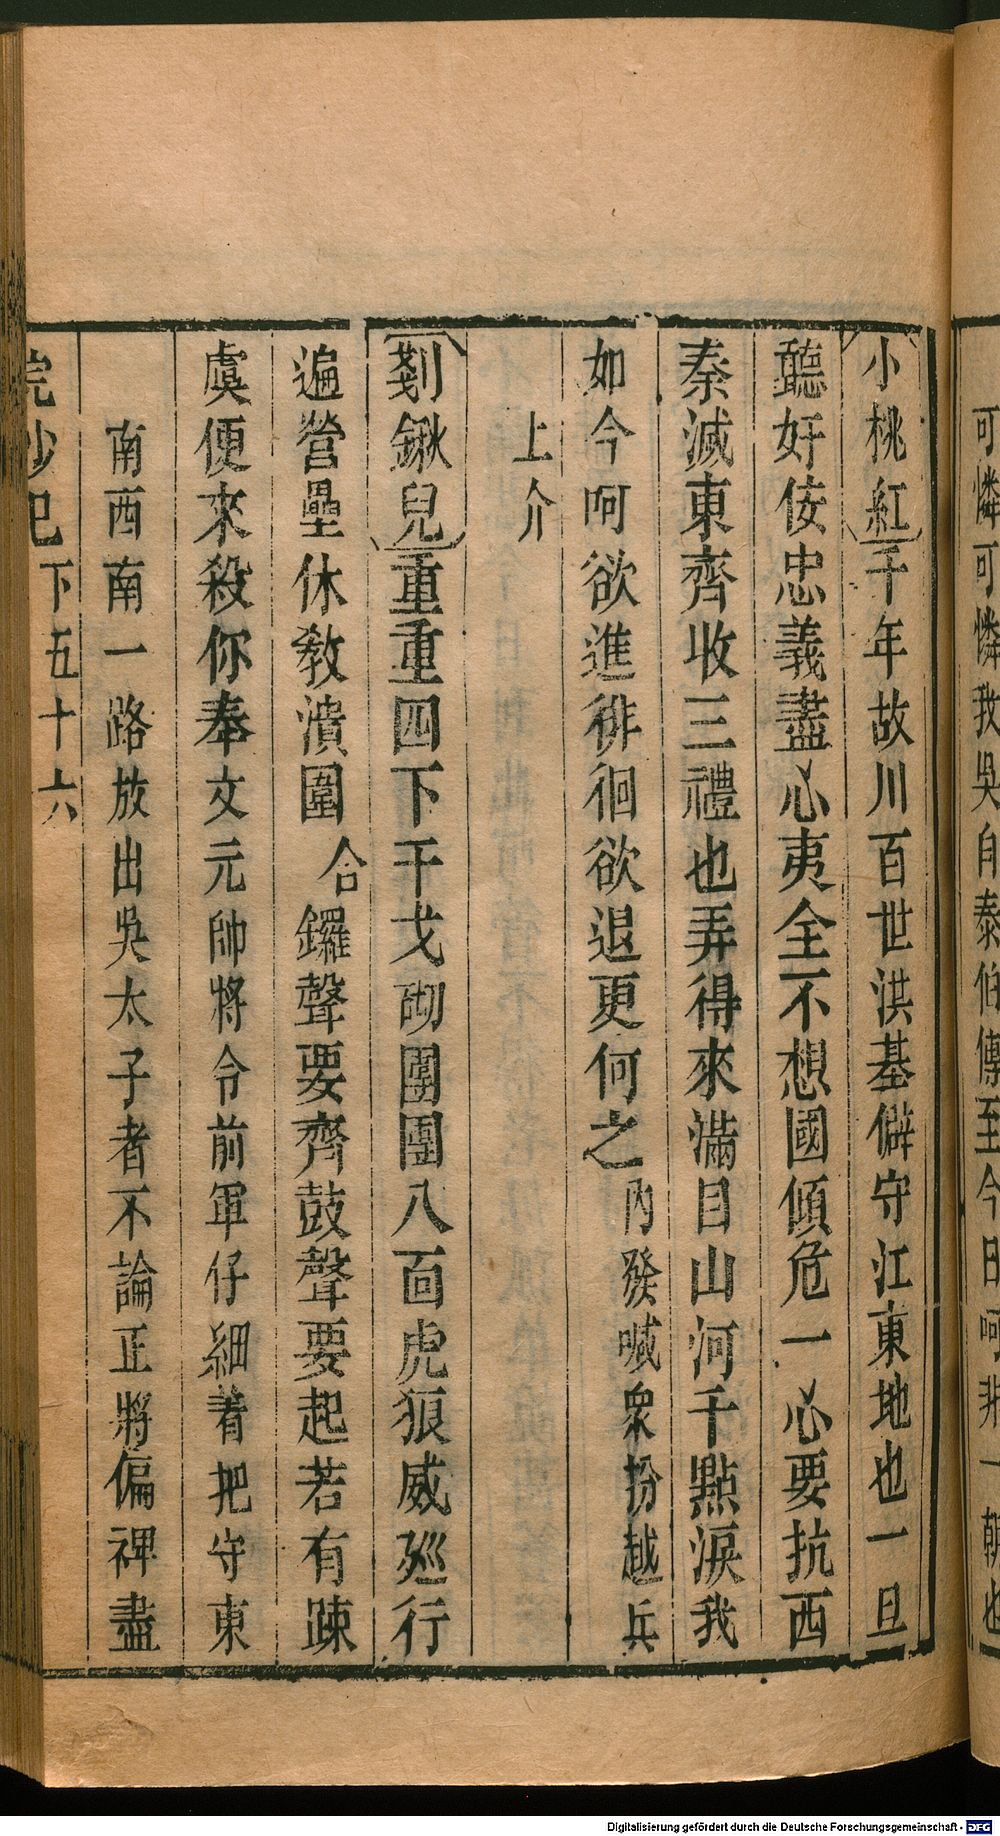 可憐可憐我吳自泰伯傳至今日呵非一朝也
小桃紅千年故川百世洪基僻守江東地也一旦
聽奸佞忠義盡心夷全不想國傾危一心要抗西
秦滅東齊收三禮也弄得來滿目山河千點淚我
如今呵欲進徘徊欲退更何之內發喊衆扮越兵
上介
剗鍬兒重重四下干戈砌團團八面虎狼威廵行
遍營壘休教潰圍合鑼聲要齊鼓聲要起若有踈
虞便來殺你奉文元帥將令前軍仔細着把守東
南西南一路放出吳太子者不論正將偏裨盡
浣紗記 下 五十六
Digitalisierung gefördert durch die Deutsche Forschungsgemeinschaft - DFG